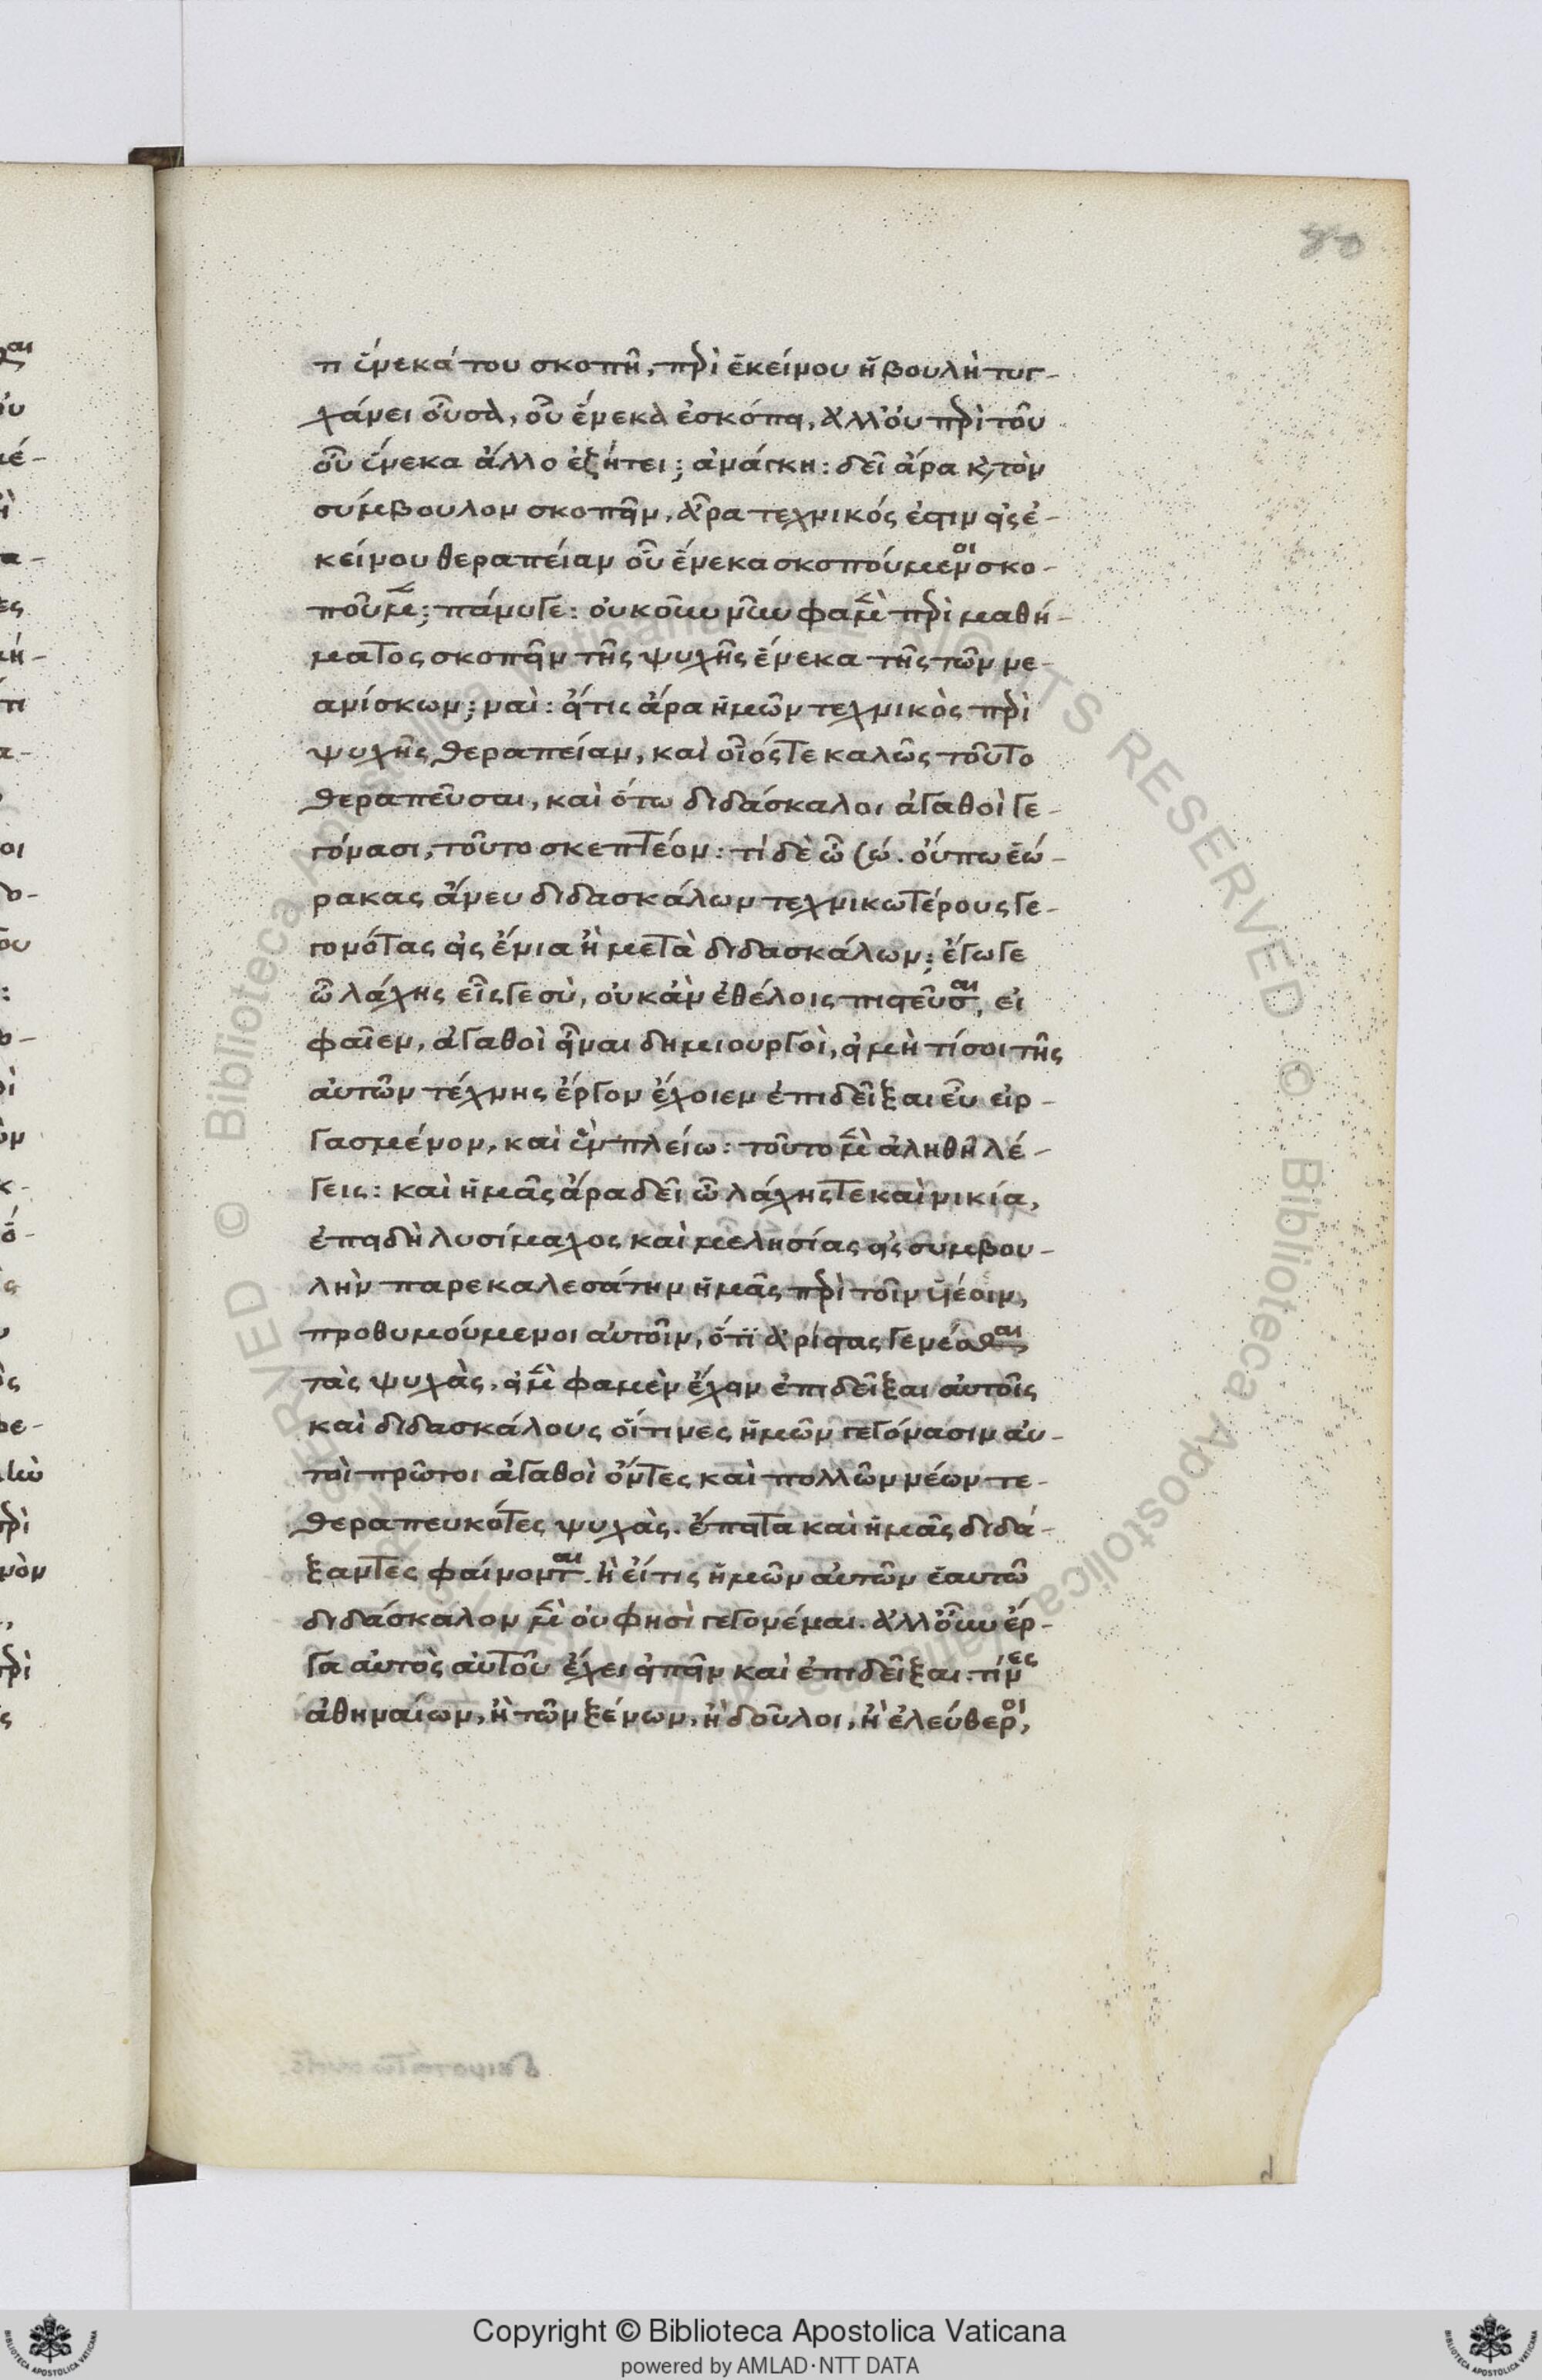 80
τι ἕνεκά του σκοπῆ, περὶ ἐκείνου ἡ βουλὴ τυγ-
χάνει οὖσα, οὗ ἕνεκα ἐσκόπει, ἀλλ' οὐ περὶ τοῦ
οὗ ἕνεκα ἄλλο ἐζήτει; ἀνάγκη: δεῖ ἄρα κ̀ τὸν
σύμβουλον σκοπεῖν, ἆρα τεχνικός ἐστιν εἰς ἐ-
κείνου θεραπείαν οὗ ἕνεκα σκοπούμενοι σκο-
ποῦμεν; πάνυ γε: οὐκοῦν νῦν φαμὲν περὶ μαθή-
ματος σκοπεῖν τῆς ψυχῆς ἕνεκα τῆς τῶν νε-
ανίσκων; ναί: εἴ τις ἄρα ἡμῶν τεχνικὸς περὶ
ψυχῆς θεραπείαν, καὶ οἷός τε καλῶς τοῦτο
θεραπεῦσαι, καὶ ὅτω διδάσκαλοι ἀγαθοὶ γε-
γόνασι, τοῦτο σκεπτέον: τί δὲ ὦ Σώ. οὔπω ἑώ-
ρακας ἄνευ διδασκάλων τεχνικωτέρους γε-
γονότας εἰς ἔνια ἢ μετὰ διδασκάλων; ἔγωγε
ὦ λάχης οἷς γε σὺ, οὐκ ἂν ἐθέλοις πιστεῦσαι, εἰ
φαῖεν, ἀγαθοὶ εἶναι δημιουργοὶ, εἰ μή τί σοι τῆς
αὐτῶν τέχνης ἔργον ἔχοιεν ἐπιδεῖξαι εὖ εἰρ-
γασμένον, καὶ ἓν πλείω: τοῦτο μὲν ἀληθῆ λέ-
γεις: καὶ ἡμᾶς ἄρα δεῖ ὦ λάχης τε καὶ νικία,
ἐπειδὴ λυσίμαχος καὶ μελησίας εἰς συμβου-
λὴν παρεκαλεσάτην ἡμᾶς περὶ τοῖν ὑέοιν,
προθυμούμενοι αὐτοῖν, ὅτι ἀρίστας γενέσθαι
τὰς ψυχὰς, εἰ μὲν φαμὲν ἔχειν ἐπιδεῖξαι αὐτοῖς
καὶ διδασκάλους οἵτινες ἡμῶν γεγόνασιν αὐ-
τοὶ πρῶτοι ἀγαθοὶ ὄντες καὶ πολλῶν νέων τε-
θεραπευκότες ψυχὰς. ἔπειτα καὶ ἡμᾶς διδά-
ξαντες φαίνονται. ἢ εἴ τις ἡμῶν αὐτῶν ἑαυτῶ
διδάσκαλον μὲν οὔ φησὶ γεγονέναι. ἀλλ' οὖν ἔρ-
γα αὐτὸς αὑτοῦ ἔχει εἰπεῖν καὶ ἐπιδεῖξαι. τίνες
ἀθηναίων, ἢ τῶν ξένων, ἢ δοῦλοι, ἢ ἐλεύθεροι,
© Biblioteca Apostolica Vaticana ALL RIGHTS RESERVED © Biblioteca Apostolica Vaticana ALL RIGHTS RESERVED
Copyright © Biblioteca Apostolica Vaticana
powered by AMLAD·NTT DATA